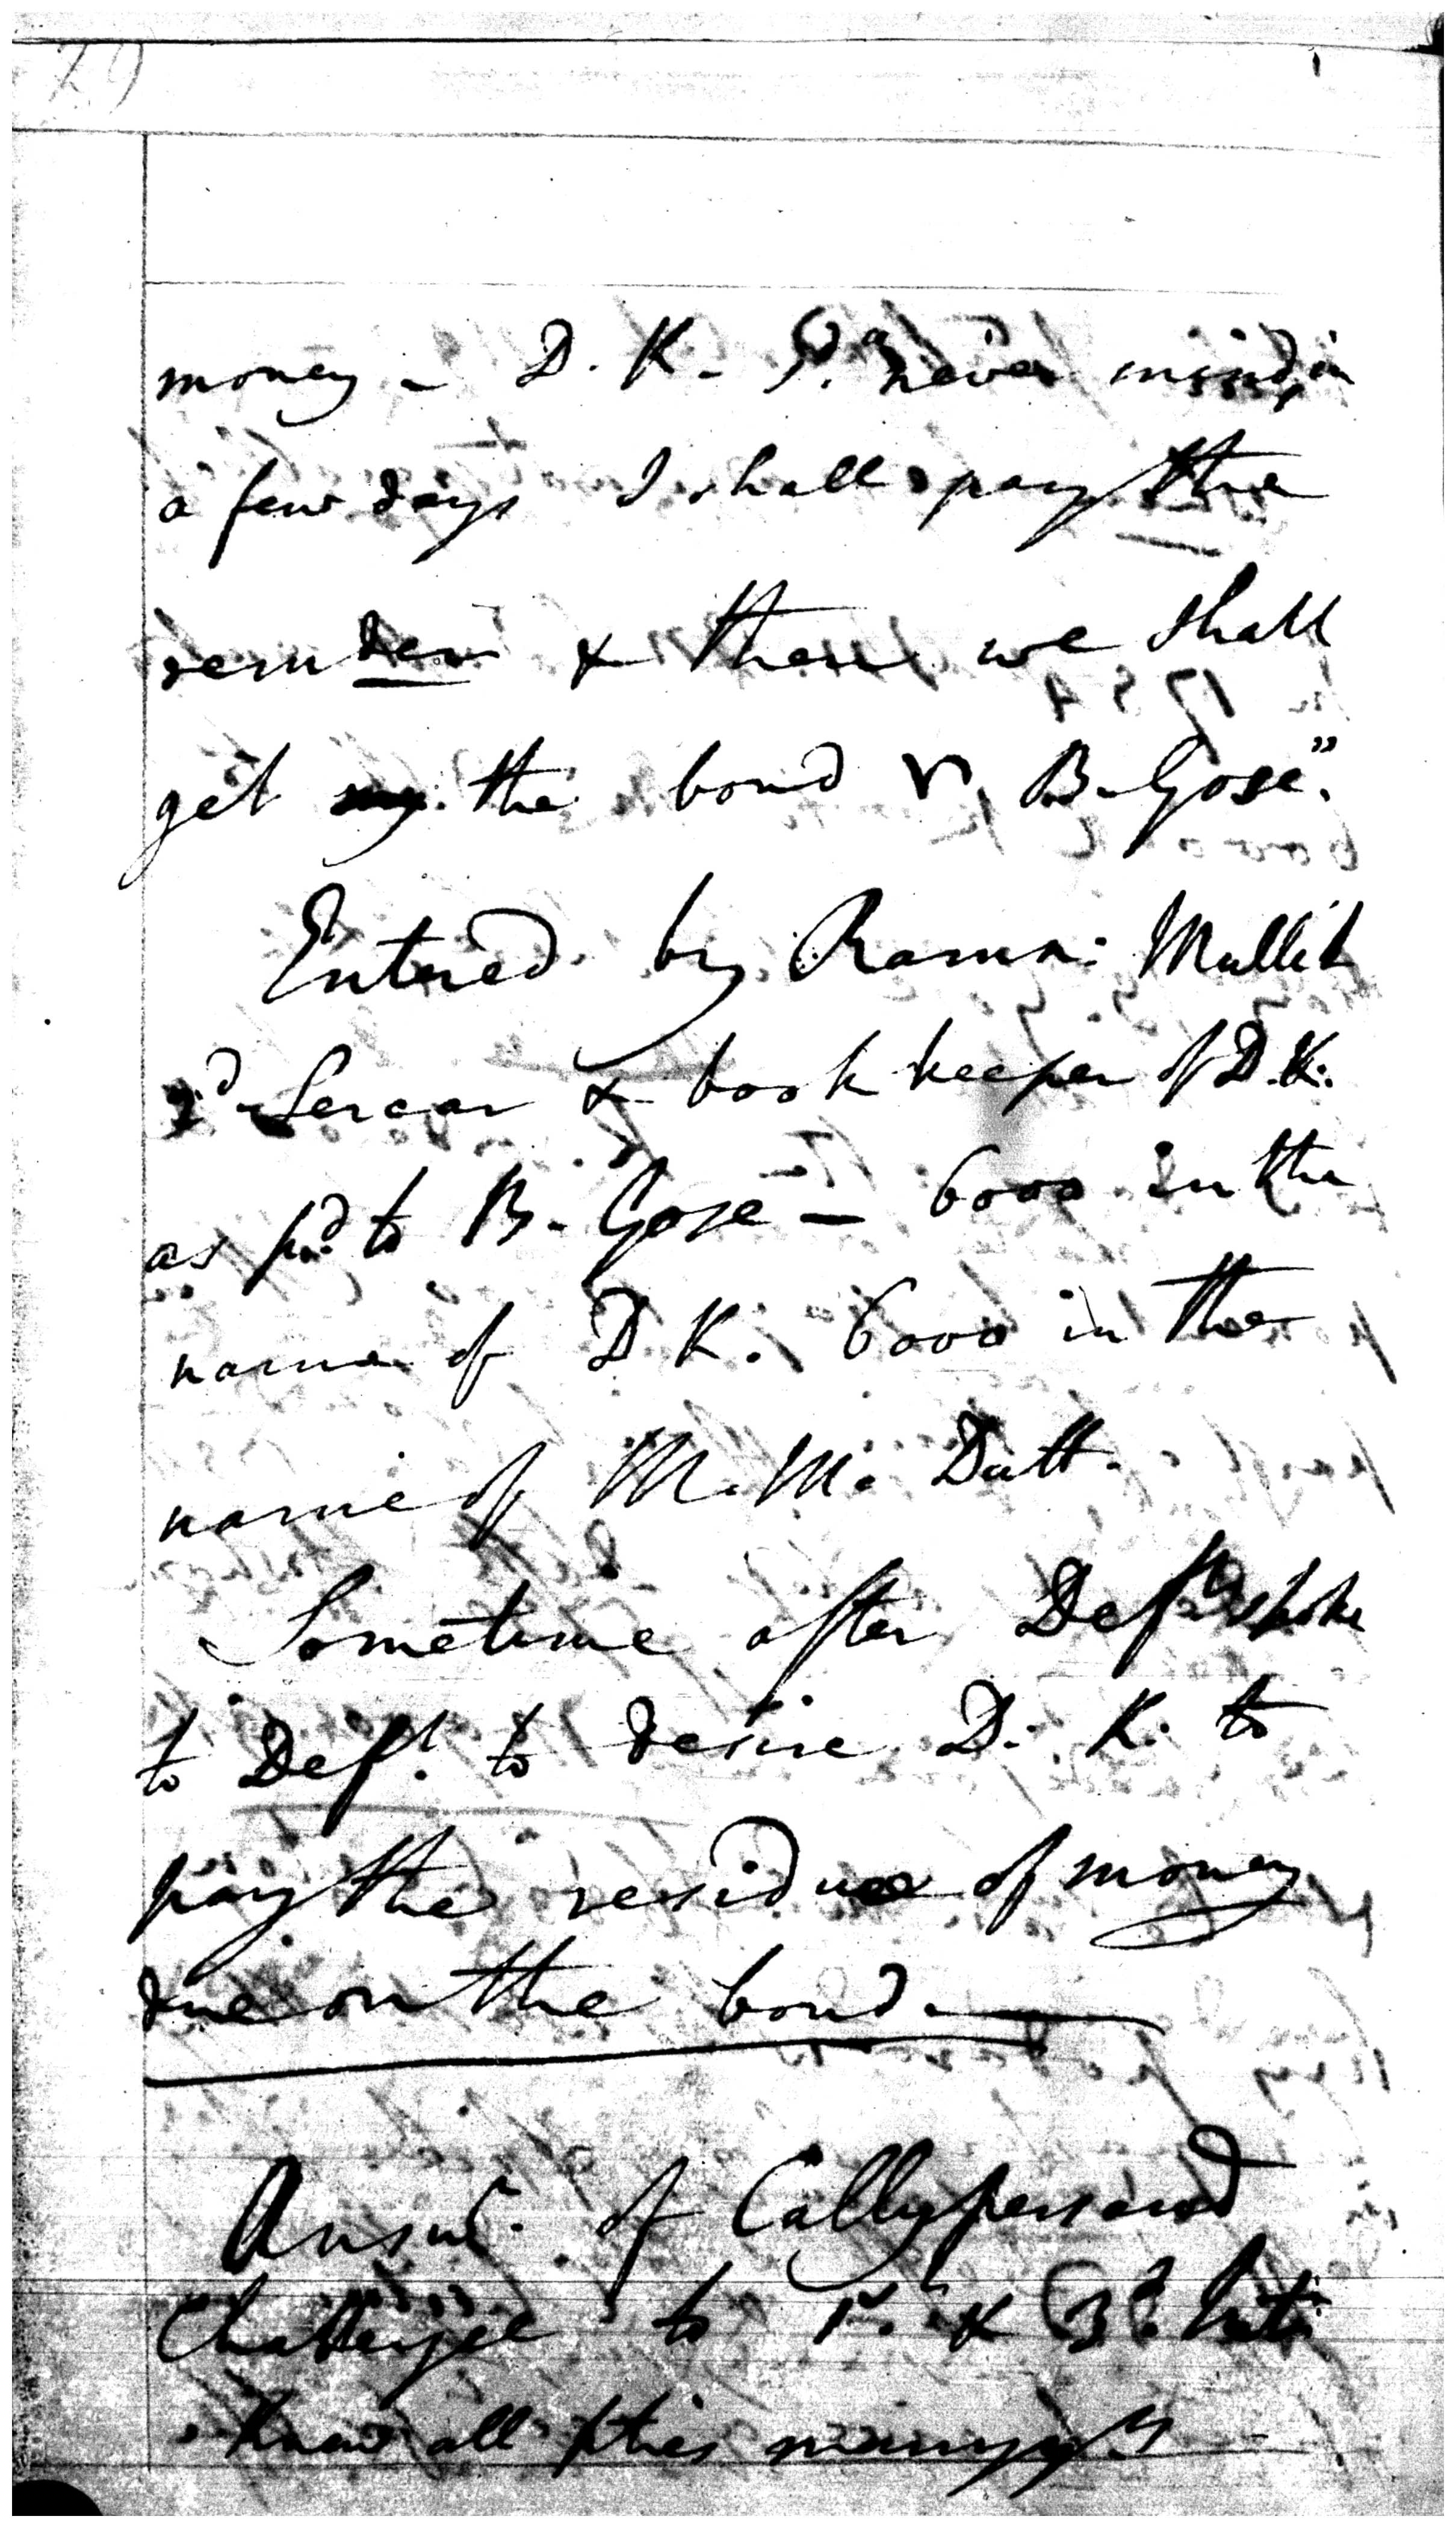 29
money - D. K. S.d "never mind, in
a few days I shall pay the
remder & then we shall
get the bond v. B. Gose".
Entered by Ramn: Mullik
2d Sercar & book keeper of D.K.
as pd to B. Gose — 6000 in the
name of D K. 6000 in the
name of M. M. Dutt.
Sometime after Deft spoke
to Deft to desire D. K. to
pay the residue of money
due on the bond.
Answr. of Callypersaud
Chatterjee to 1st. & 3d. Inty
Knew all pties many yrs